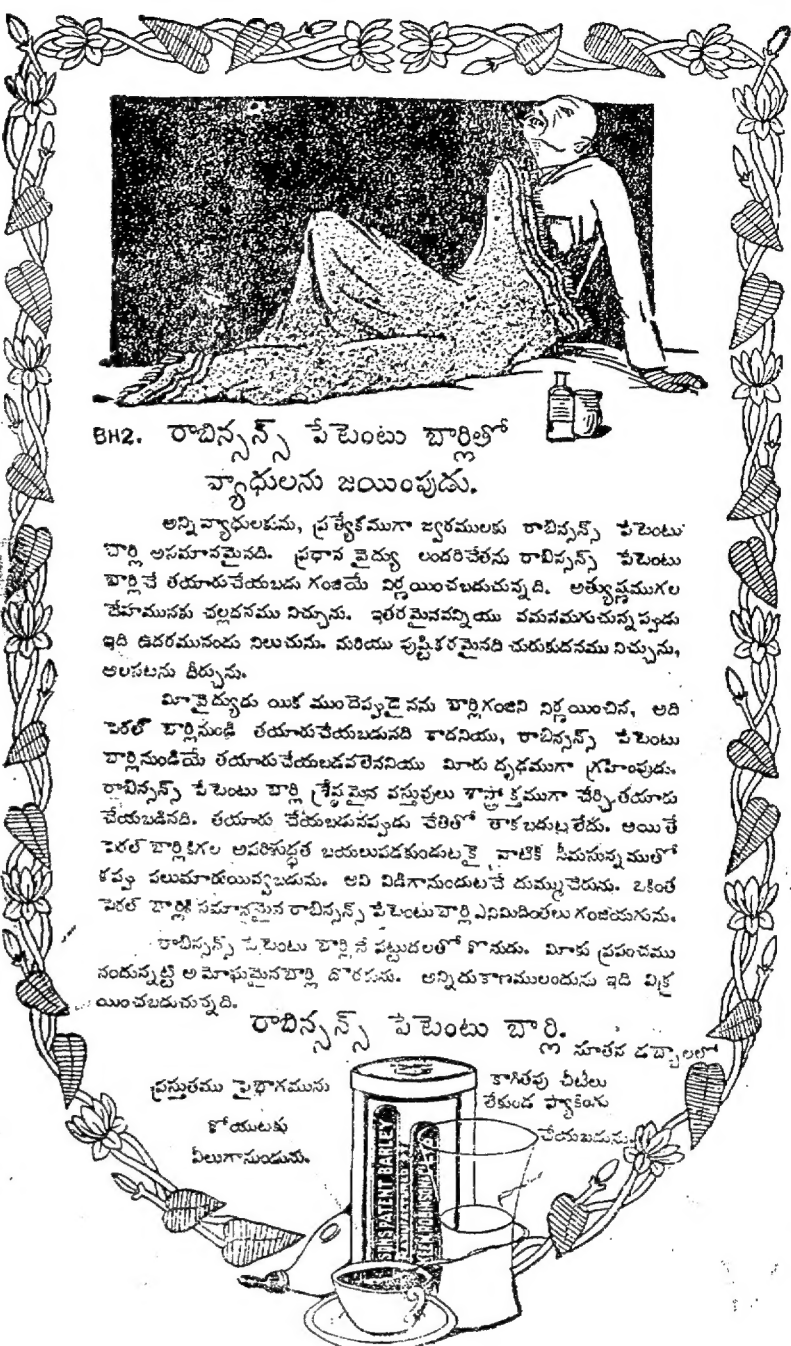 BH2. రాబిన్సన్స్ పేటెంటు బార్లితో
వ్యాధులను జయింపుడు.
అన్నివ్యాధులకును, ప్రత్యేకముగా జ్వరములకు రాబిన్సన్స్ పేటెంటు
బార్లి అసమానమైనది. ప్రధాన వైద్యు లందరిచేతను రాబిన్సన్స్ పేటెంటు
బార్లిచే తయారుచేయబడు గంజియే నిర్ణయించబడుచున్నది. అత్యుష్ణముగల
దేహమునకు చల్లదనము నిచ్చును. ఇతరమైనవన్నియు వమనమగుచున్నప్పుడు
ఇది ఉదరమునందు నిలుచును. మరియు పుష్టికరమైనది చురుకుదనము నిచ్చును,
అలసటను దీర్చును.
మీవైద్యుడు యిక ముందెప్పుడైనను బార్లిగంజిని నిర్ణయించిన, అది
పెరల్ బార్లినుండి తయారుచేయబడునది కాదనియు, రాబిన్సన్స్ పేటెంటు
బార్లినుండియే తయారుచేయబడవలెననియు మీరు దృఢముగా గ్రహింపుడు.
రాబిన్సన్స్ పేటెంటు బార్లి శ్రేష్ఠమైన వస్తువులు శాస్త్రోక్తముగా చేర్చి తయారు
చేయబడినది. తయారు చేయబడునప్పుడు చేతితో తాకబడుటలేదు. అయితే
పెరల్ బార్లికిగల అపరిశుద్ధత బయలుపడకుండుటకై వాటికి సీమసున్నముతో
కప్పు పలుమారుయివ్వబడును. అవి విడిగానుండుటచే దుమ్ముచేరును. ఒకింత
పెరల్ బార్లికి సమానమైన రాబిన్సన్స్ పేటెంటుబార్లి ఎనిమిదింతలు గంజియగును.
రాబిన్సన్స్ పేటెంటు బార్లినే పట్టుదలతో కొనుడు. మీకు ప్రపంచము
నందున్నట్టి అమోఘమైనబార్లి దొరకును. అన్నిదుకాణములందును ఇది విక్ర
యించబడుచున్నది.
రాబిన్సన్స్ పేటెంటు బార్లి.
నూతన డబ్బాలలో
ప్రస్తుతము పైభాగమును
కోయుటకు
వీలుగానుండును.
కాగితపు చీటీలు
లేకుండ ప్యాకింగు
చేయబడును.
SONS PATENT BARLEY